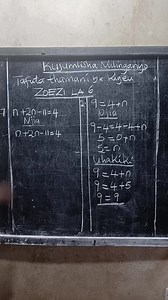 Kujumlisha Milinganyo
Tafuta thamani ya kigeu
ZOEZI LA 6
n+2n-11=4
Njia
n+2n-11=4
9=4+n
Njia
9-4=4-4+n
5=0+n
5=n
Uhakiki
9=4+n
9=4+5
9=9